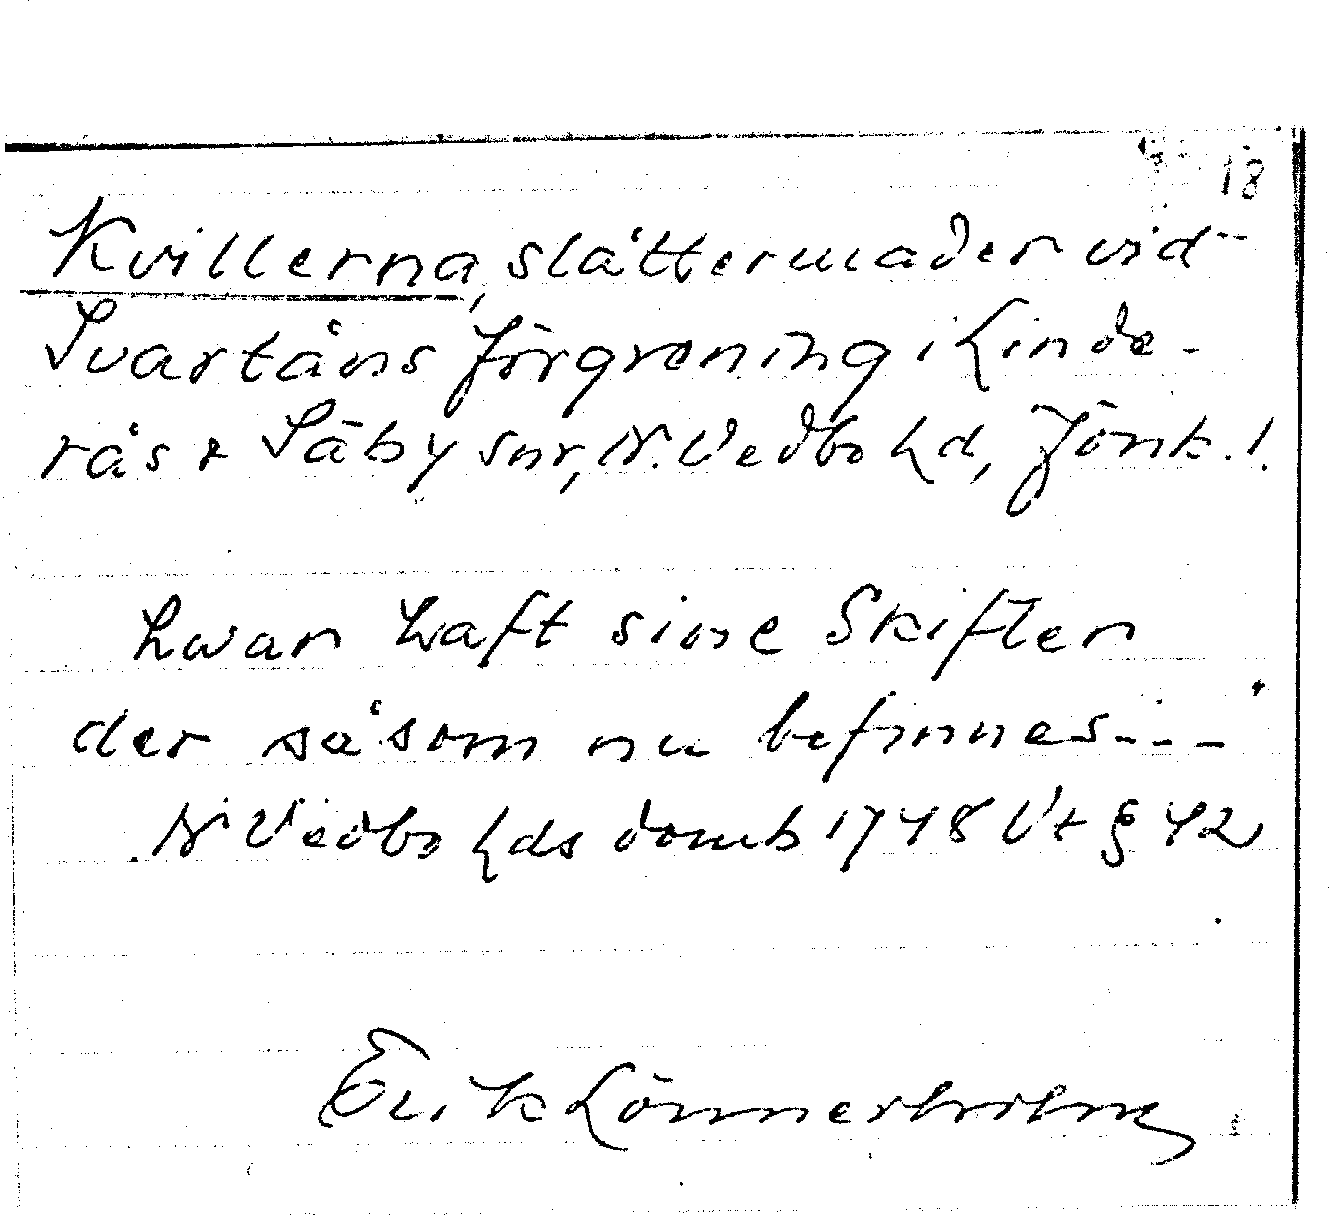 18
Kvillerna, slåttermader vid
Svartåns förgrening i Linde-
rås & Säby snr, N. Vedbo hd, Jönk. l.
hwar haft sine Skifter
der såsom nu befinnes - - - "
N Vedbo hds domb 1748 Vt § 42
Erik Lönnerholm